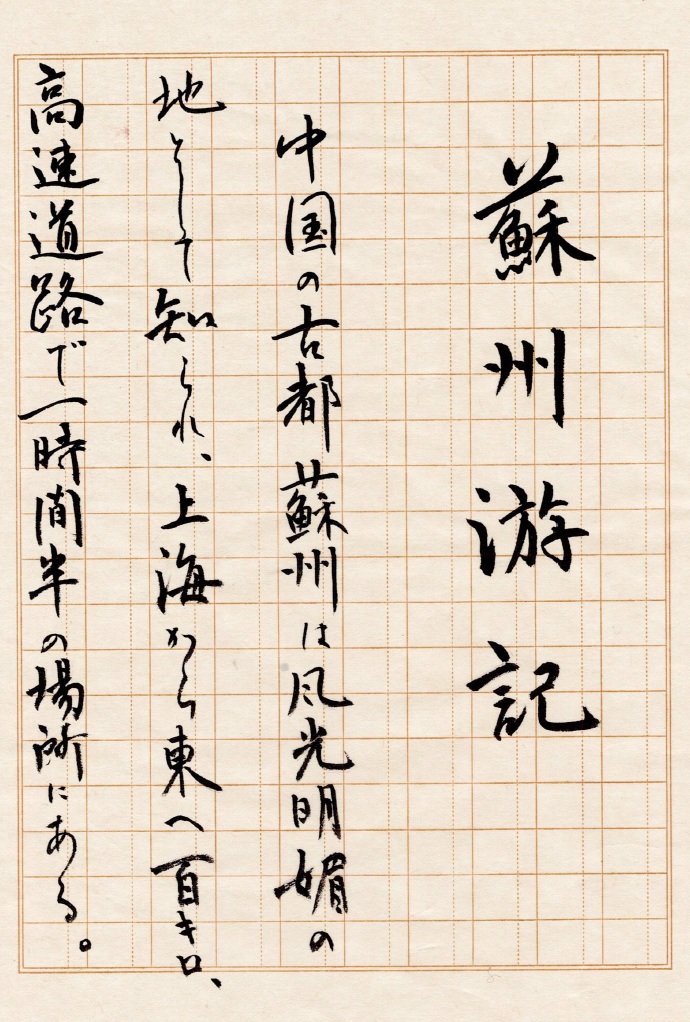 蘇州游記
中国の古都蘇州は风光明媚の
地として知られ、上海から東へ百キロ、
高速道路で一時間半の場所にある。